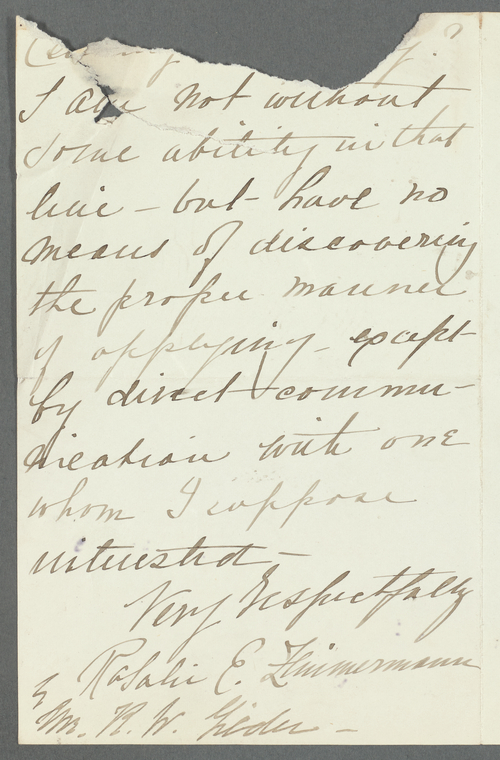 I am not without
some ability in that
line – but have no
means of discovering
the proper manner
of applying – except
by direct commu-
nication with one
whom I suppose
interested –
Very Respectfully
Rosalie E. Zimmermann
Mr. R. W. Gilder –